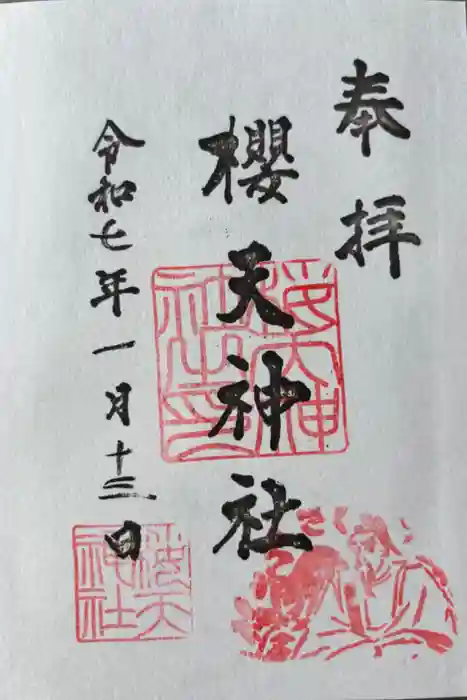 奉拝
櫻天神社
令和七年一月十三日
櫻天神社之印
櫻天神社
さくら